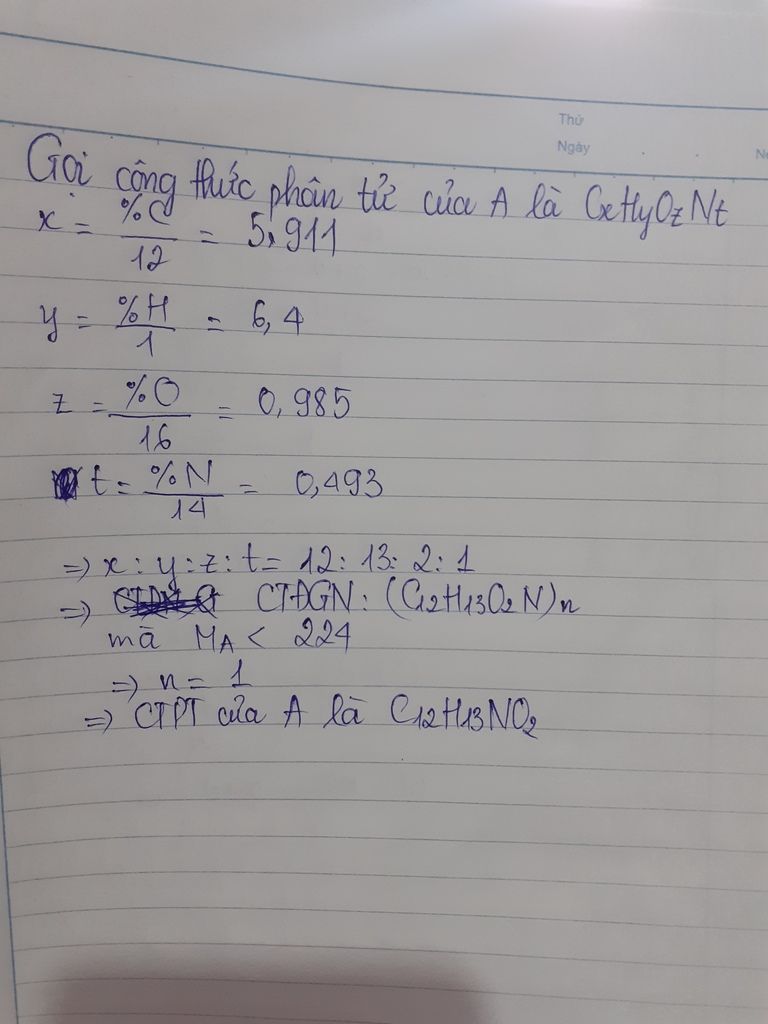 Thứ
Ngày
Gọi công thức phân tử của A là CxHyOzNt
x = %C / 12 = 5,911
y = %H / 1 = 6,4
z = %O / 16 = 0,985
t = %N / 14 = 0,493
=> x : y : z : t = 12 : 13 : 2 : 1
=> CTĐGN : (C12H13O2N)n
mà MA < 224
=> n = 1
=> CTPT của A là C12H13NO2